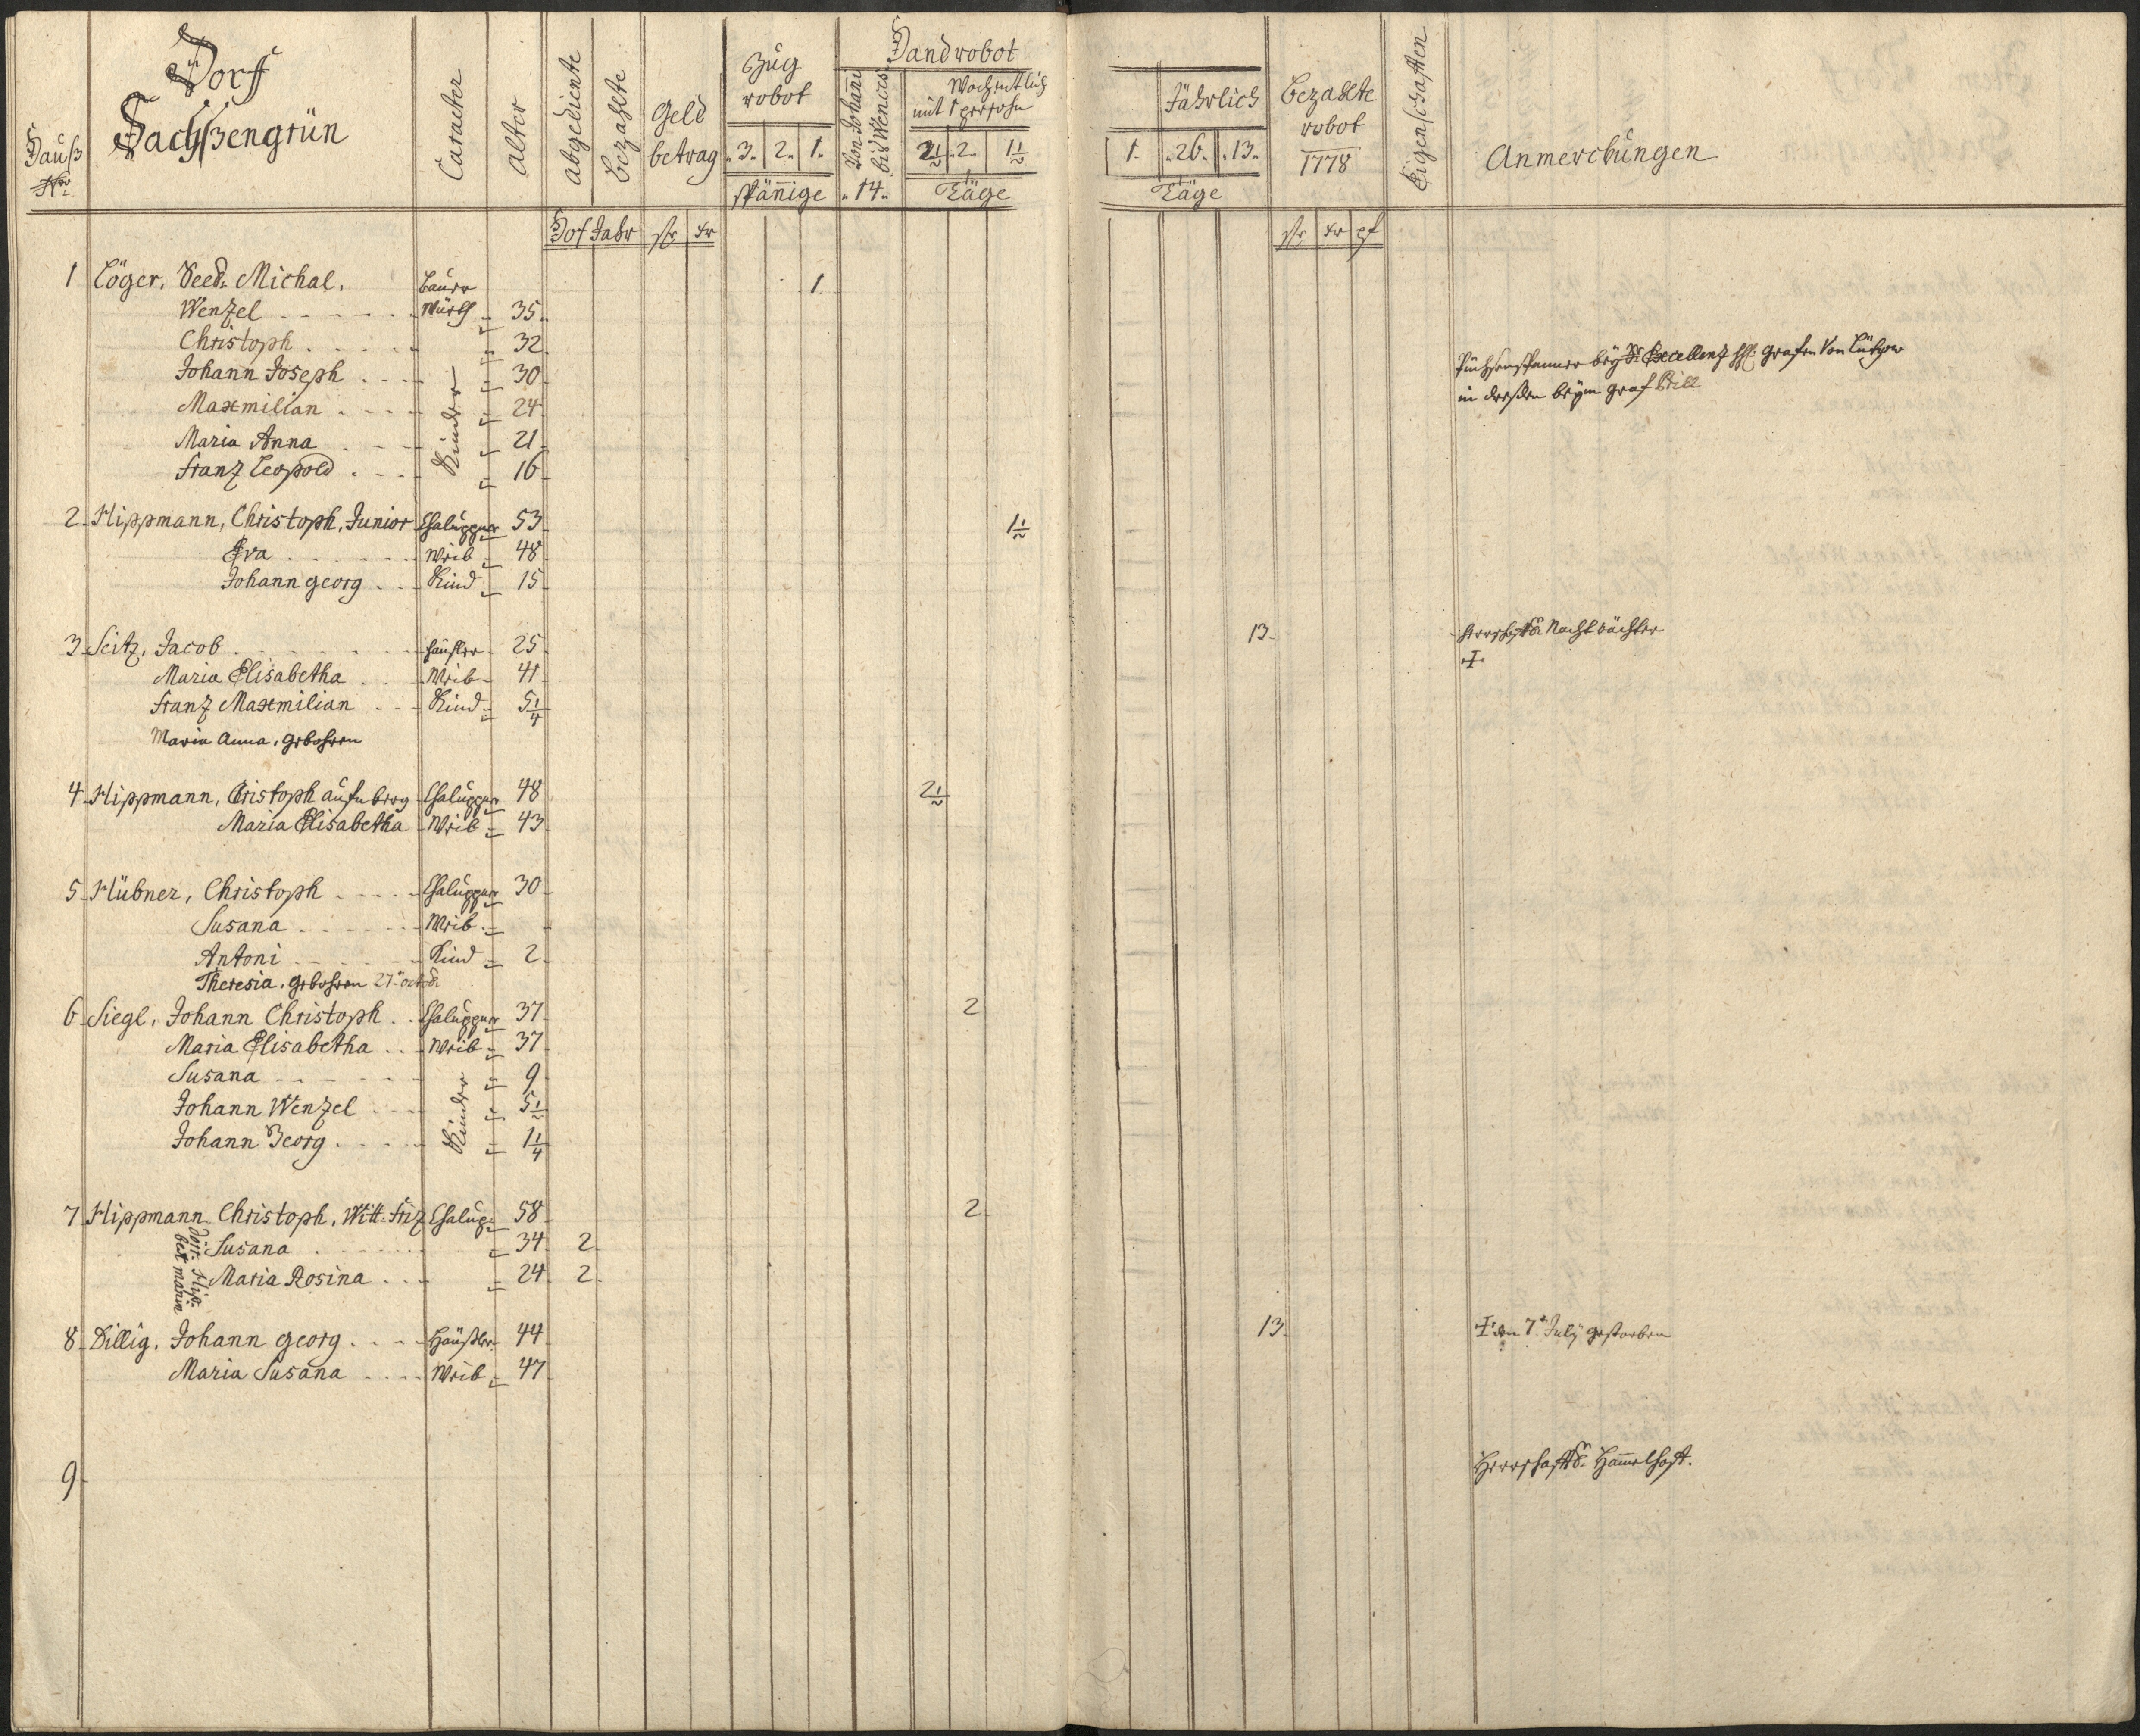 Dorf
Sachßengrün
Hauß
Nro
Caracter
Alter
abgediente
bezahlte
Hof Jahr
Geld
betrag
fl kr
Zug
robot
3. 2. 1.
spänige
Handrobot
Von Johani
bis Wences:
14.
Wochentlich
mit 1 persohn
2½ 2. 1½
Täge
Jährlich
1. 26. 13.
Täge
bezahlte
robot
1778
fl kr pf
Eigenschaften
Anmerckungen
1 Löger, Seel: Michal. Bauer 1.
Wenzel Würth 35
Christoph 32
Johann Joseph 30 Püchsenspanner bey Sr Excellenz H: Grafen von Lützow
Maxmilian 24 in dreßden beym Graf Brill
Maria Anna 21
Franz Leopold 16
Kinder
2 Hippmann, Christoph, Junior Chalupper 53 1½
Eva Weib 48
Johann georg Kind 15
3 Seitz, Jacob häußler 25 13 herrschftl: Nachtwächter
Maria Elisabetha Weib 41
Franz Maxmilian Kind 5¼
Maria Anna, gebohren
4 Hippmann, Cristoph aufn berg Chalupper 48 2½
Maria Elisabetha Weib 43
5 Hübner, Christoph Chalupper 30
Susana Weib
Antoni Kind 2
Theresia, gebohren 27t octob.
6 Siegl, Johann Christoph Chalupper 37 2
Maria Elisabetha Weib 37
Susana 9
Johann Wenzel 5½
Johann Georg 1¼
Kinder
7 Hippmann Christoph, Witt: Friz Chalup: 58 2
Susana 34 2
Maria Rosina 24 2
8 Dillig, Johann georg Häußler 44 13 den 7t July gestorben
Maria Susana Weib 47
9 Herrschaftl: Hammelhoft.